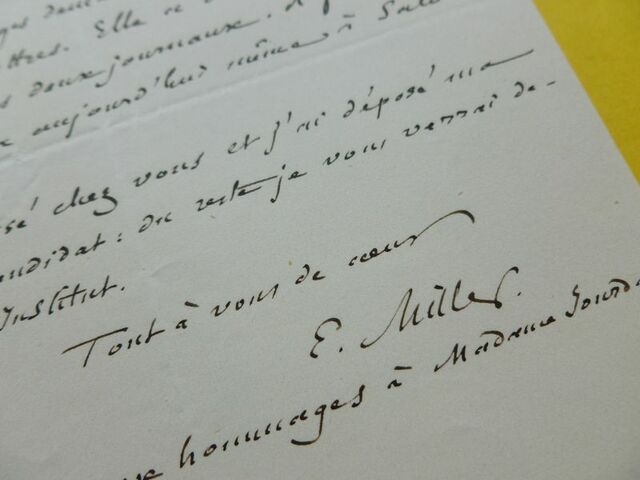 ttres. Elle
deux journaux.
aujourd'hui même à
chez vous et j'ai déposé ma
candidat: du reste je vous verrai de-
Institut.
Tout à vous de coeur
E. Miller.
hommages à Madame Jourda